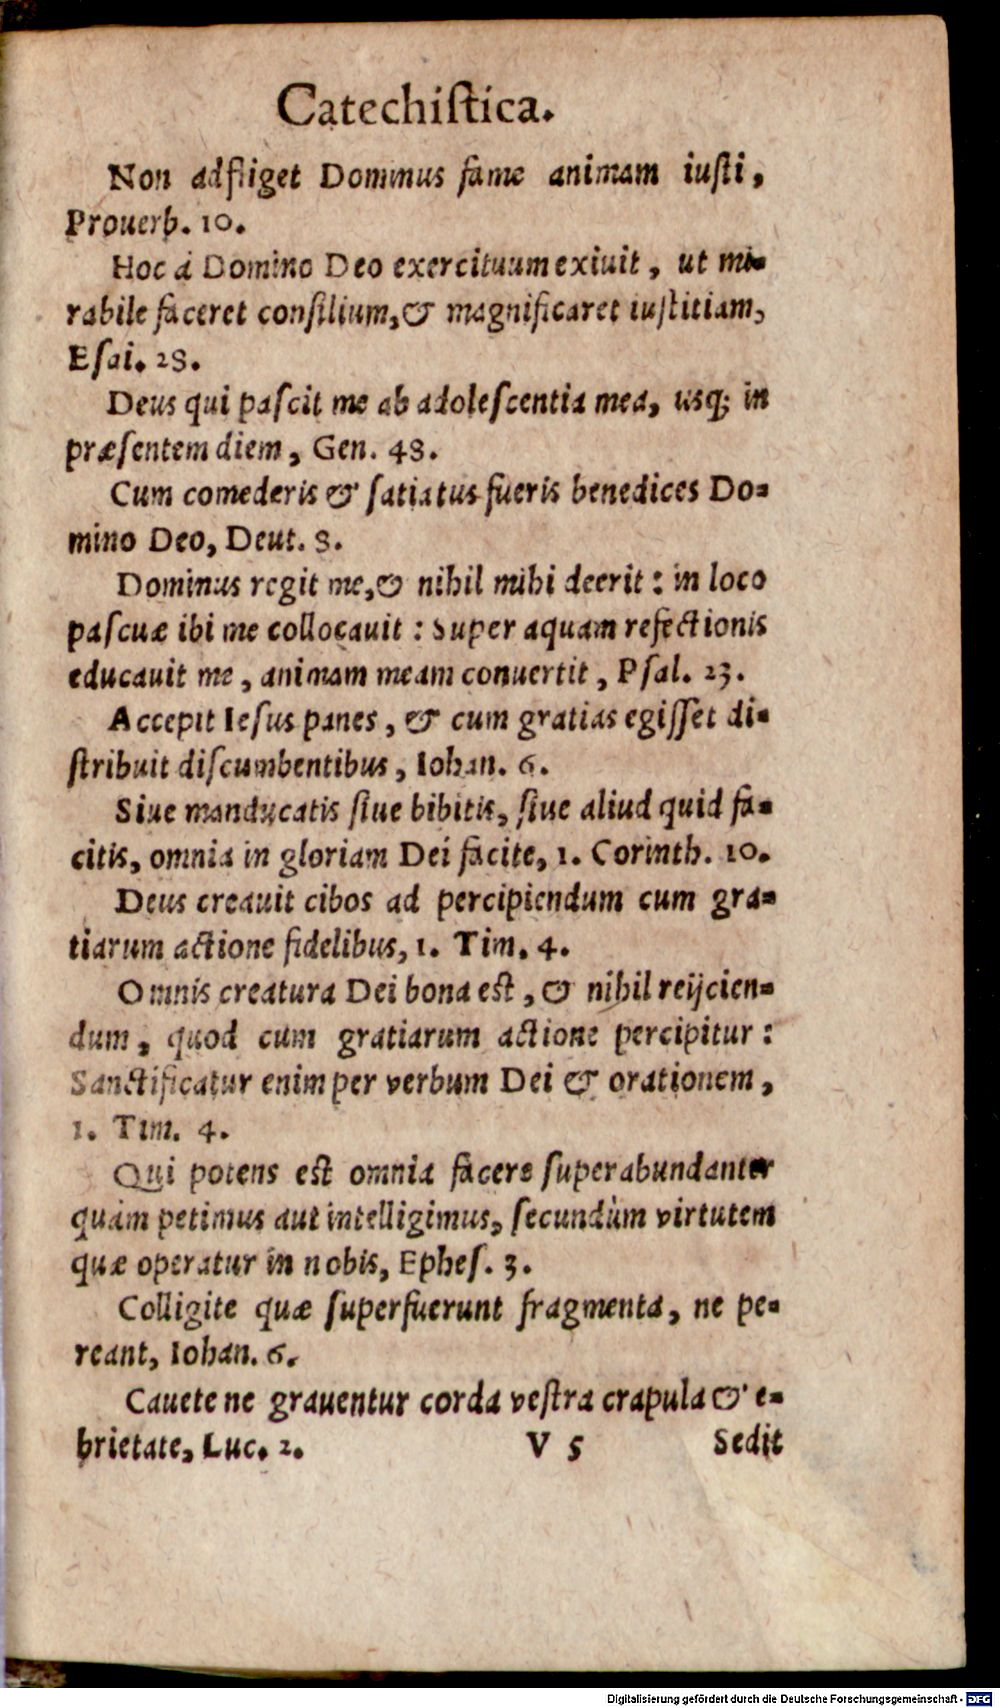 Catechiſtica.
Non adfliget Dominus fame animam iuſti,
Prouerb. 10.
Hoc à Domino Deo exercituum exiuit, ut mi-
rabile faceret conſilium, & magnificaret iuſtitiam,
Eſai. 28.
Deus qui paſcit me ab adoleſcentia mea, usq; in
præſentem diem, Gen. 48.
Cum comederis & ſatiatus fueris benedices Do-
mino Deo, Deut. 8.
Dominus regit me, & nihil mihi deerit: in loco
paſcuæ ibi me collocauit: Super aquam refectionis
educauit me, animam meam conuertit, Pſal. 23.
Accepit Ieſus panes, & cum gratias egiſſet di-
ſtribuit diſcumbentibus, Iohan. 6.
Siue manducatis ſiue bibitis, ſiue aliud quid fa-
citis, omnia in gloriam Dei facite, 1. Corinth. 10.
Deus creauit cibos ad percipiendum cum gra-
tiarum actione fidelibus, 1. Tim. 4.
Omnis creatura Dei bona est, & nihil reijcien-
dum, quod cum gratiarum actione percipitur:
Sanctificatur enim per verbum Dei & orationem,
1. Tim. 4.
Qui potens est omnia facere ſuperabundanter
quàm petimus aut intelligimus, ſecundùm virtutem
quæ operatur in nobis, Epheſ. 3.
Colligite quæ ſuperfuerunt fragmenta, ne pe-
reant, Iohan. 6.
Cauete ne grauentur corda veſtra crapula & e-
brietate, Luc. 2.
V 5 Sedit
Digitalisierung gefördert durch die Deutsche Forschungsgemeinschaft - DFG